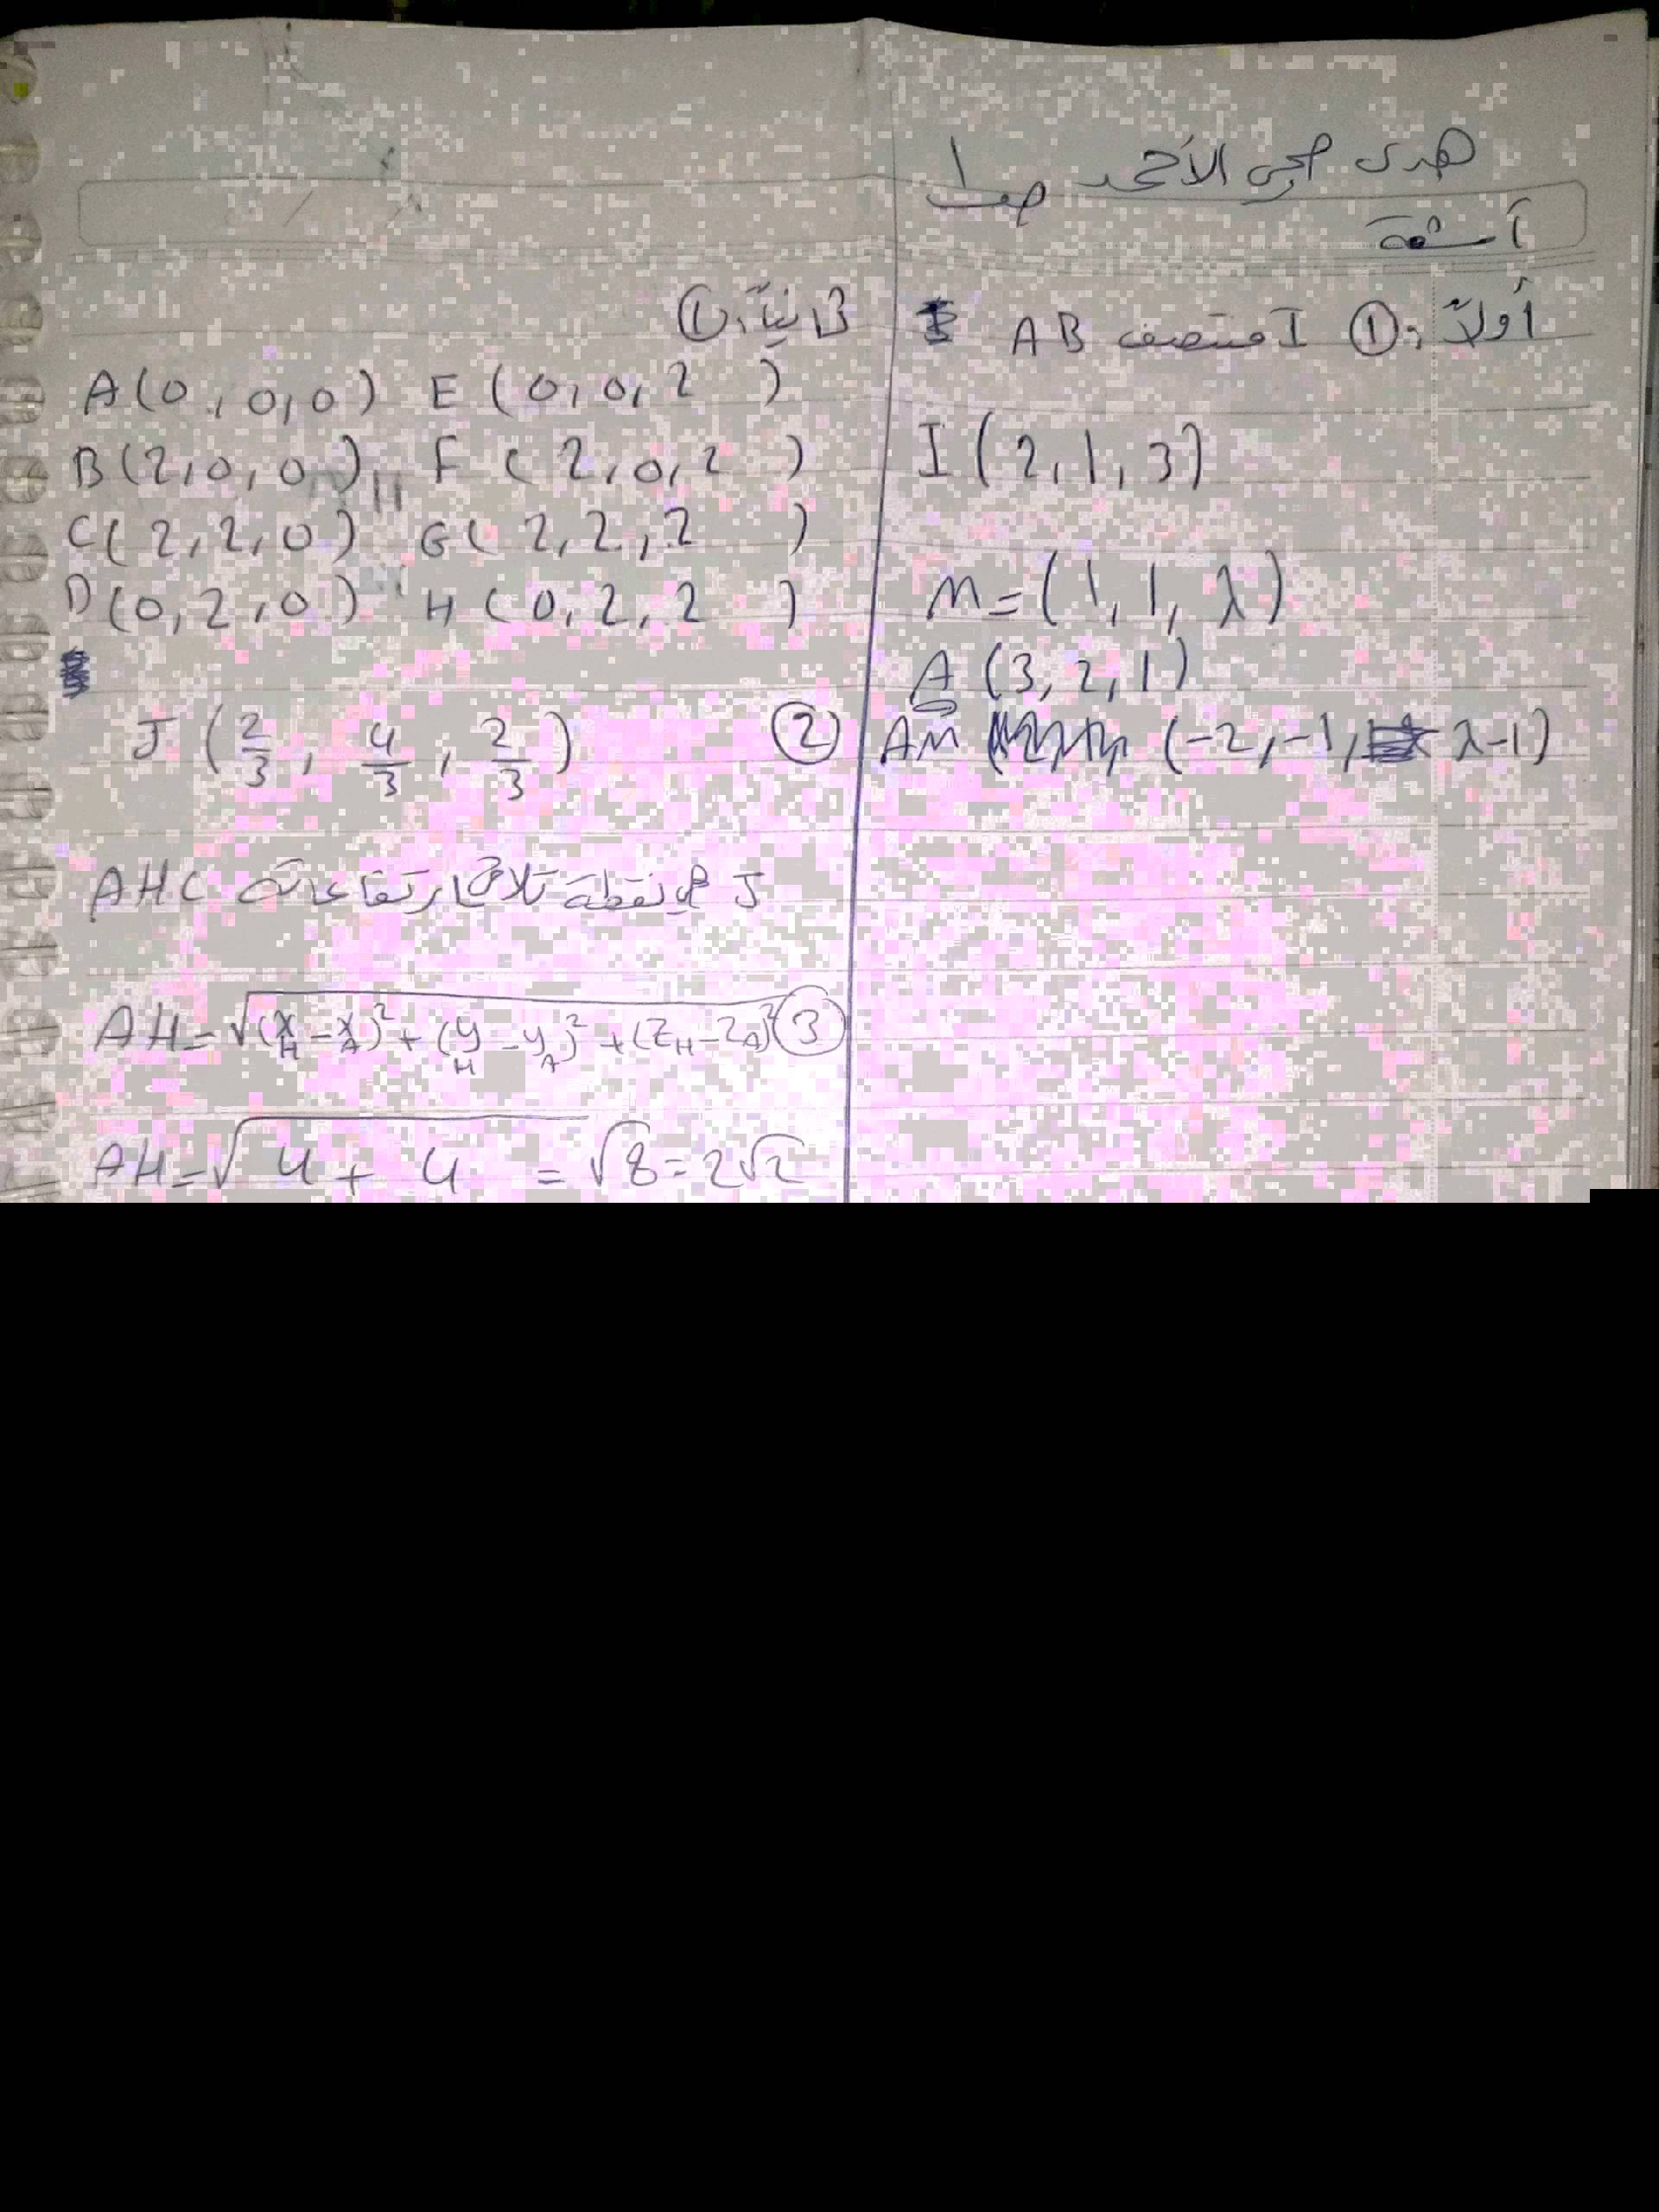 هدى صحي الأحمد صف ١
آ شعة
أولاً: ① I منتصف AB
I (2, 1, 3)
M = (1, 1, λ)
A (3, 2, 1)
AM (-2, -1, λ-1)
ثانياً: ①
A(0, 0, 0) E (0, 0, 2)
B(2, 0, 0) F (2, 0, 2)
C(2, 2, 0) G(2, 2, 2)
D(0, 2, 0) H (0, 2, 2)
② J (2/3, 4/3, 2/3)
J هي نقطة تلاقي ارتفاعات AHC
③ AH = √(x_H - x_A)² + (y_H - y_A)² + (z_H - z_A)²
AH = √4 + 4 = √8 = 2√2